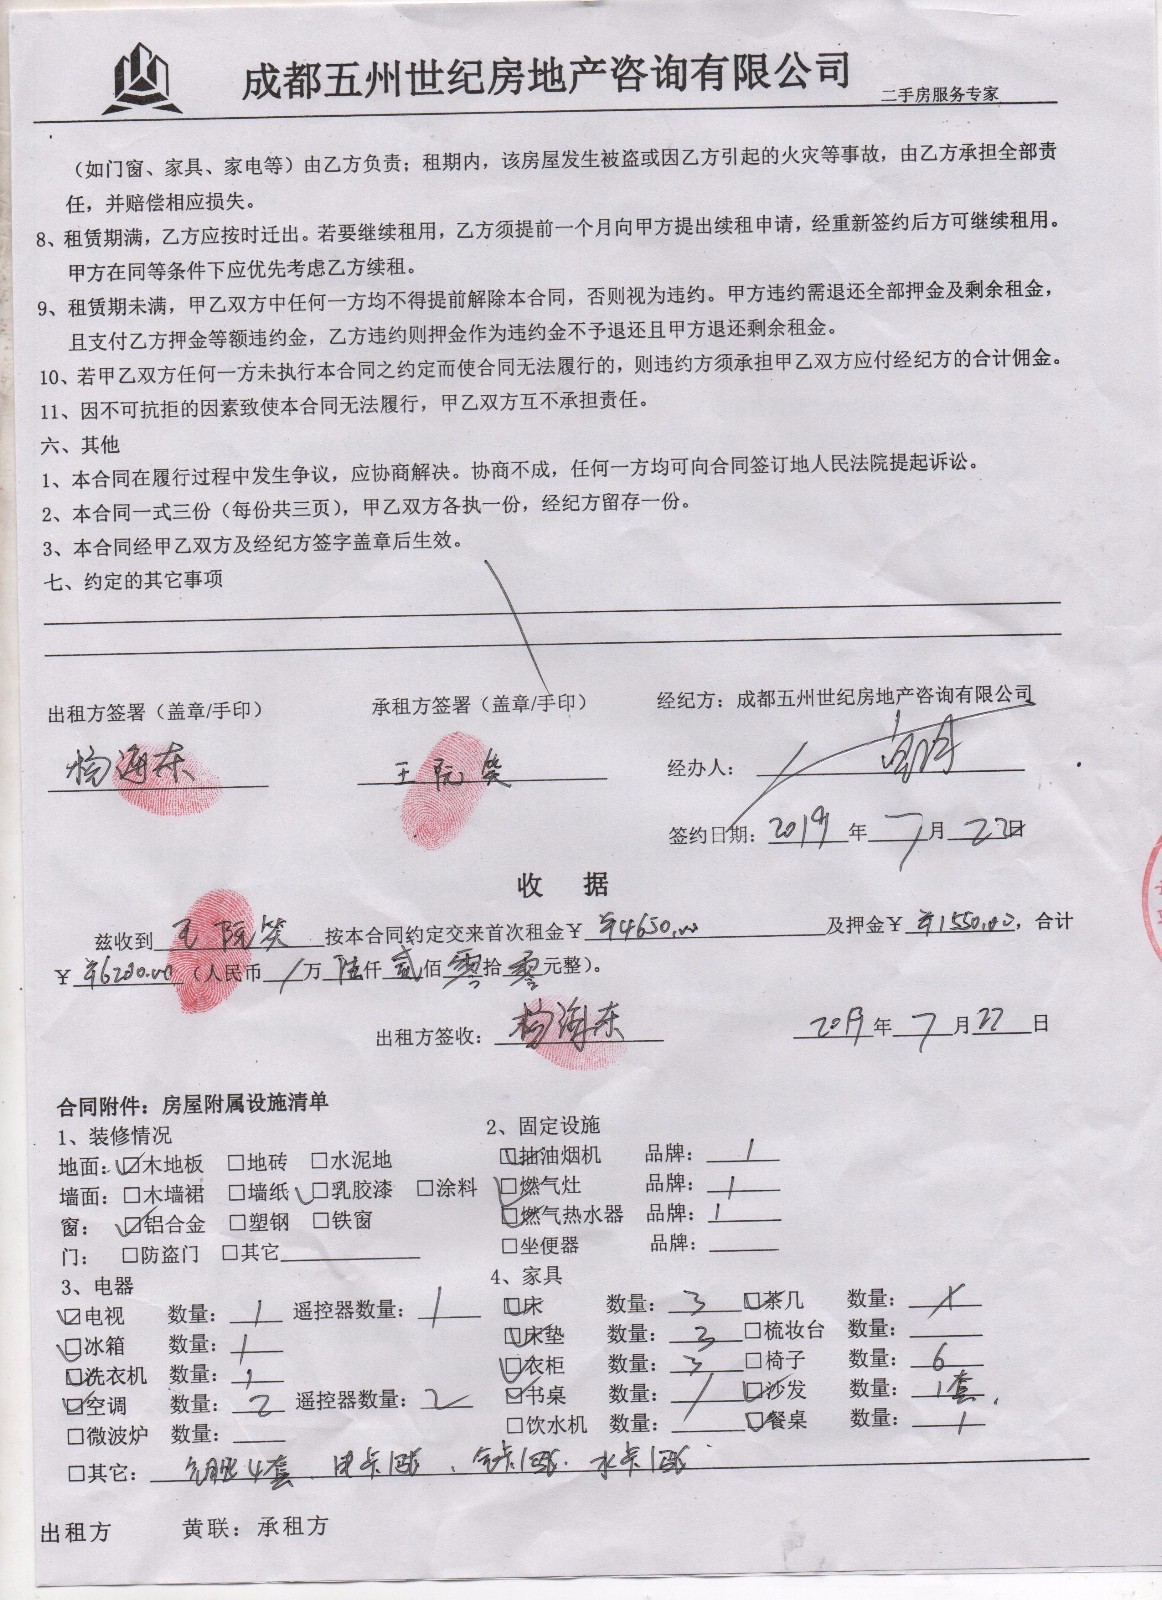 成都五州世纪房地产咨询有限公司
二手房服务专家
（如门窗、家具、家电等）由乙方负责；租期内，该房屋发生被盗或因乙方引起的火灾等事故，由乙方承担全部责
任，并赔偿相应损失。
8、租赁期满，乙方应按时迁出。若要继续租用，乙方须提前一个月向甲方提出续租申请，经重新签约后方可继续租用。
甲方在同等条件下应优先考虑乙方续租。
9、租赁期未满，甲乙双方中任何一方均不得提前解除本合同，否则视为违约。甲方违约需退还全部押金及剩余租金，
且支付乙方押金等额违约金，乙方违约则押金作为违约金不予退还且甲方退还剩余租金。
10、若甲乙双方任何一方未执行本合同之约定而使合同无法履行的，则违约方须承担甲乙双方应付经纪方的合计佣金。
11、因不可抗拒的因素致使本合同无法履行，甲乙双方互不承担责任。
六、其他
1、本合同在履行过程中发生争议，应协商解决。协商不成，任何一方均可向合同签订地人民法院提起诉讼。
2、本合同一式三份（每份共三页），甲乙双方各执一份，经纪方留存一份。
3、本合同经甲乙双方及经纪方签字盖章后生效。
七、约定的其它事项
出租方签署（盖章/手印） 承租方签署（盖章/手印） 经纪方：成都五州世纪房地产咨询有限公司
杨海东 王阮笑 经办人：
签约日期：2019年7月22日
收 据
兹收到 王阮笑 按本合同约定交来首次租金￥ ¥4650.00 及押金￥ ¥1550.00，合计
￥ ¥6200.00（人民币 / 万 陆 仟 贰 佰 零 拾 零 元整）。
出租方签收：杨海东 2019年7月22日
合同附件：房屋附属设施清单
1、装修情况 2、固定设施
地面：☑木地板 □地砖 □水泥地 ☑抽油烟机 品牌：1
墙面：□木墙裙 □墙纸 ☑乳胶漆 □涂料 ☑燃气灶 品牌：1
窗：☑铝合金 □塑钢 □铁窗 ☑燃气热水器 品牌：1
门：□防盗门 □其它 □坐便器 品牌：
3、电器 4、家具
☑电视 数量：1 遥控器数量：1 ☑床 数量：3 ☑茶几 数量：1
☑冰箱 数量：1 ☑床垫 数量：3 □梳妆台 数量：
☑洗衣机 数量：1 ☑衣柜 数量：3 □椅子 数量：6
☑空调 数量：2 遥控器数量：2 ☑书桌 数量：1 ☑沙发 数量：1套.
□微波炉 数量： □饮水机 数量： ☑餐桌 数量：1
□其它：钥匙4套、电卡1张、气卡1张、水卡1张
出租方 黄联：承租方